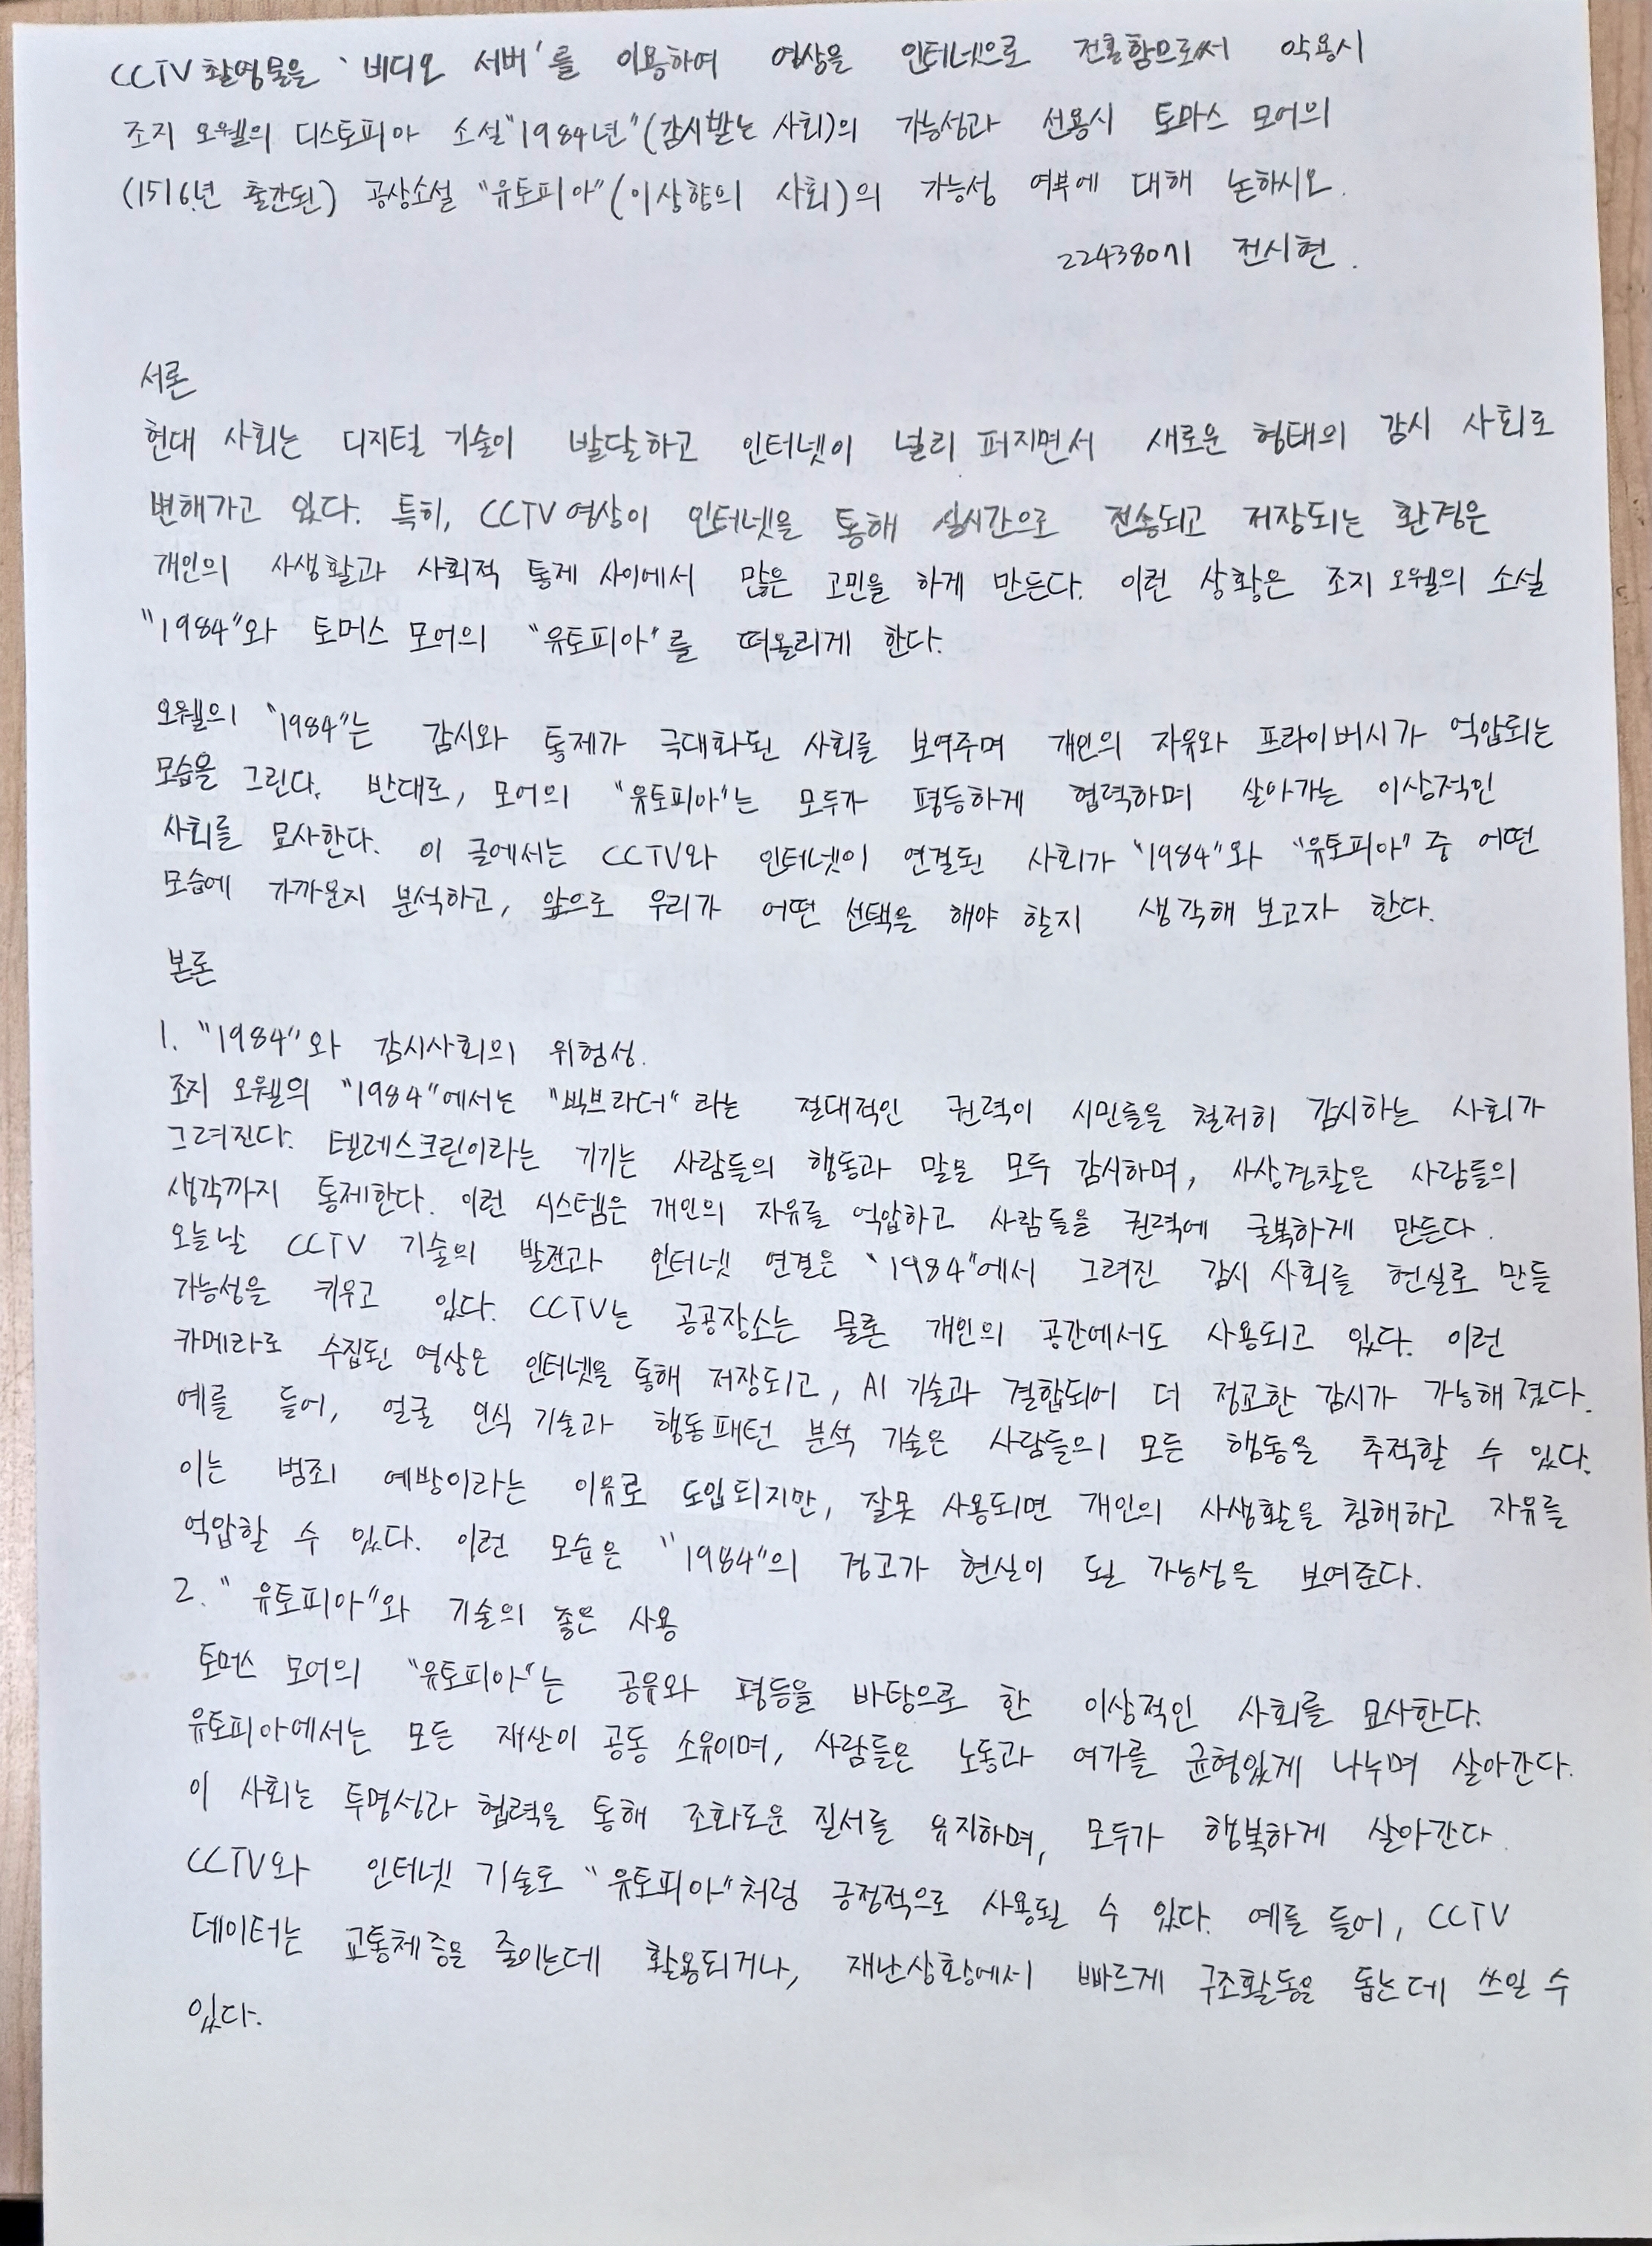 CCTV 촬영물을 '비디오 서버'를 이용하여 영상을 인터넷으로 전송함으로써 악용시
조지 오웰의 디스토피아 소설 "1984년"(감시받는 사회)의 가능성과 선용시 토마스 모어의
(1516년 출간된) 공상소설 "유토피아"(이상향의 사회)의 가능성 여부에 대해 논하시오.
전시현.
서론
현대 사회는 디지털 기술이 발달하고 인터넷이 널리 퍼지면서 새로운 형태의 감시 사회로
변해가고 있다. 특히, CCTV 영상이 인터넷을 통해 실시간으로 전송되고 저장되는 환경은
개인의 사생활과 사회적 통제 사이에서 많은 고민을 하게 만든다. 이런 상황은 조지 오웰의 소설
"1984"와 토머스 모어의 "유토피아"를 떠올리게 한다.
오웰의 "1984"는 감시와 통제가 극대화된 사회를 보여주며 개인의 자유와 프라이버시가 억압되는
모습을 그린다. 반대로, 모어의 "유토피아"는 모두가 평등하게 협력하며 살아가는 이상적인
사회를 묘사한다. 이 글에서는 CCTV와 인터넷이 연결된 사회가 "1984"와 "유토피아" 중 어떤
모습에 가까운지 분석하고, 앞으로 우리가 어떤 선택을 해야 할지 생각해 보고자 한다.
본론
1. "1984"와 감시사회의 위험성.
조지 오웰의 "1984"에서는 "빅브라더"라는 절대적인 권력이 시민들을 철저히 감시하는 사회가
그려진다. 텔레스크린이라는 기기는 사람들의 행동과 말을 모두 감시하며, 사상경찰은 사람들의
생각까지 통제한다. 이런 시스템은 개인의 자유를 억압하고 사람들을 권력에 굴복하게 만든다.
오늘날 CCTV 기술의 발전과 인터넷 연결은 "1984"에서 그려진 감시 사회를 현실로 만들
가능성을 키우고 있다. CCTV는 공공장소는 물론 개인의 공간에서도 사용되고 있다. 이런
카메라로 수집된 영상은 인터넷을 통해 저장되고, AI 기술과 결합되어 더 정교한 감시가 가능해 졌다.
예를 들어, 얼굴 인식 기술과 행동패턴 분석 기술은 사람들의 모든 행동을 추적할 수 있다.
이는 범죄 예방이라는 이유로 도입되지만, 잘못 사용되면 개인의 사생활을 침해하고 자유를
억압할 수 있다. 이런 모습은 "1984"의 경고가 현실이 될 가능성을 보여준다.
2. "유토피아"와 기술의 좋은 사용
토머스 모어의 "유토피아"는 공유와 평등을 바탕으로 한 이상적인 사회를 묘사한다.
유토피아에서는 모든 재산이 공동 소유이며, 사람들은 노동과 여가를 균형있게 나누며 살아간다.
이 사회는 투명성과 협력을 통해 조화로운 질서를 유지하며, 모두가 행복하게 살아간다.
CCTV와 인터넷 기술도 "유토피아"처럼 긍정적으로 사용될 수 있다. 예를 들어, CCTV
데이터는 교통체증을 줄이는데 활용되거나, 재난상황에서 빠르게 구조활동을 돕는데 쓰일 수
있다.